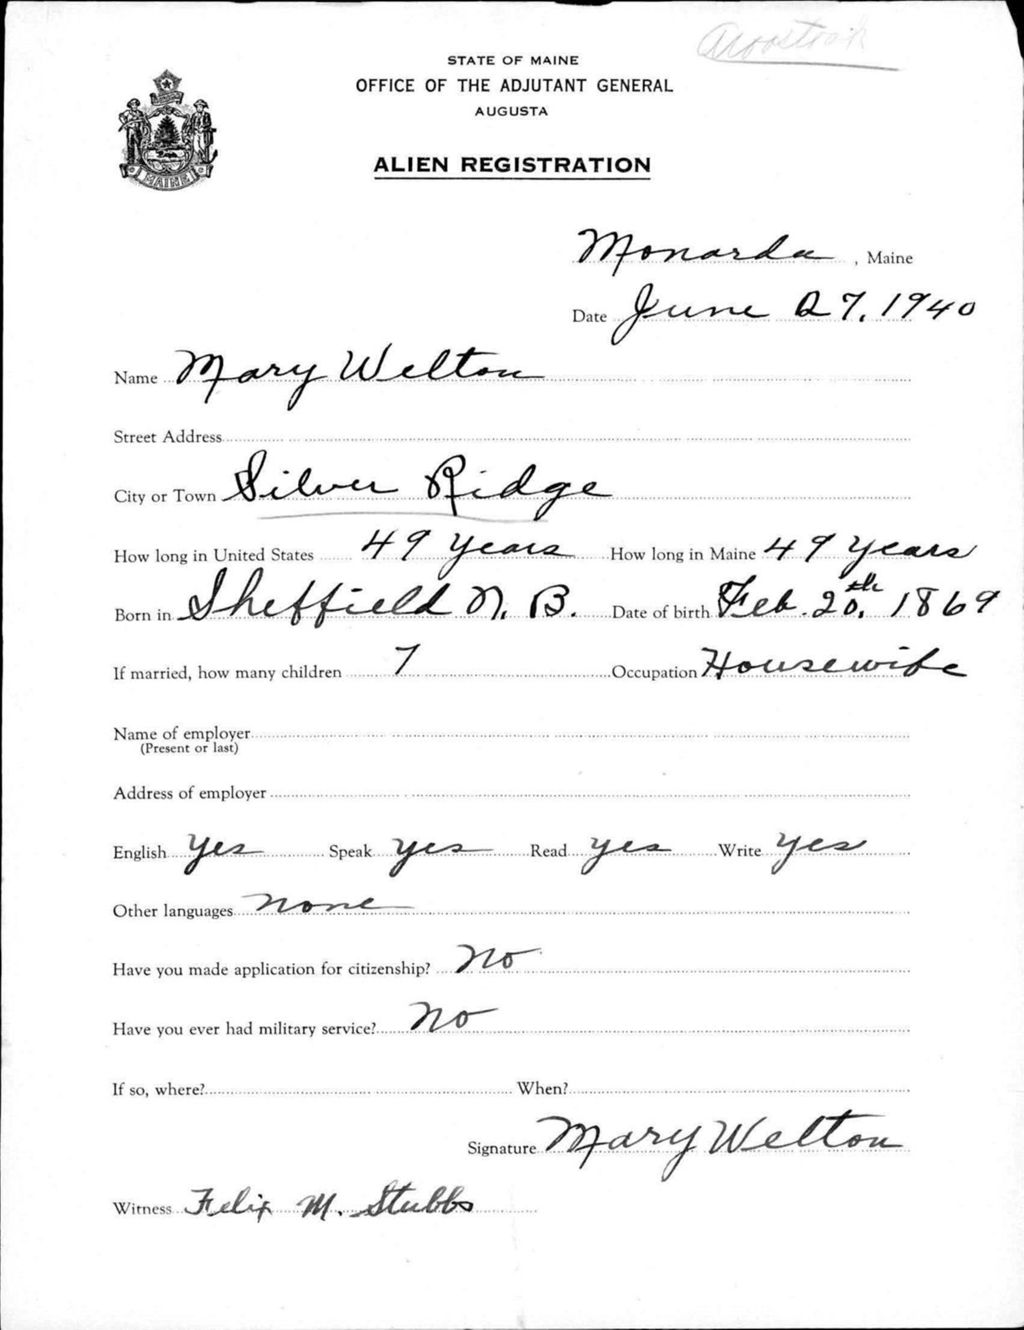 Aroostook
STATE OF MAINE
OFFICE OF THE ADJUTANT GENERAL
AUGUSTA
ALIEN REGISTRATION
MAINE
Monarda, Maine
Date June 27, 1940
Name Mary Welton
Street Address
City or Town Silver Ridge
How long in United States 49 years How long in Maine 49 years
Born in Sheffield N. B. Date of birth Feb. 20th, 1869
If married, how many children 7 Occupation Housewife
Name of employer
(Present or last)
Address of employer
English yes Speak yes Read yes Write yes
Other languages none
Have you made application for citizenship? No
Have you ever had military service? No
If so, where? When?
Signature Mary Welton
Witness Felix M. Stubbs